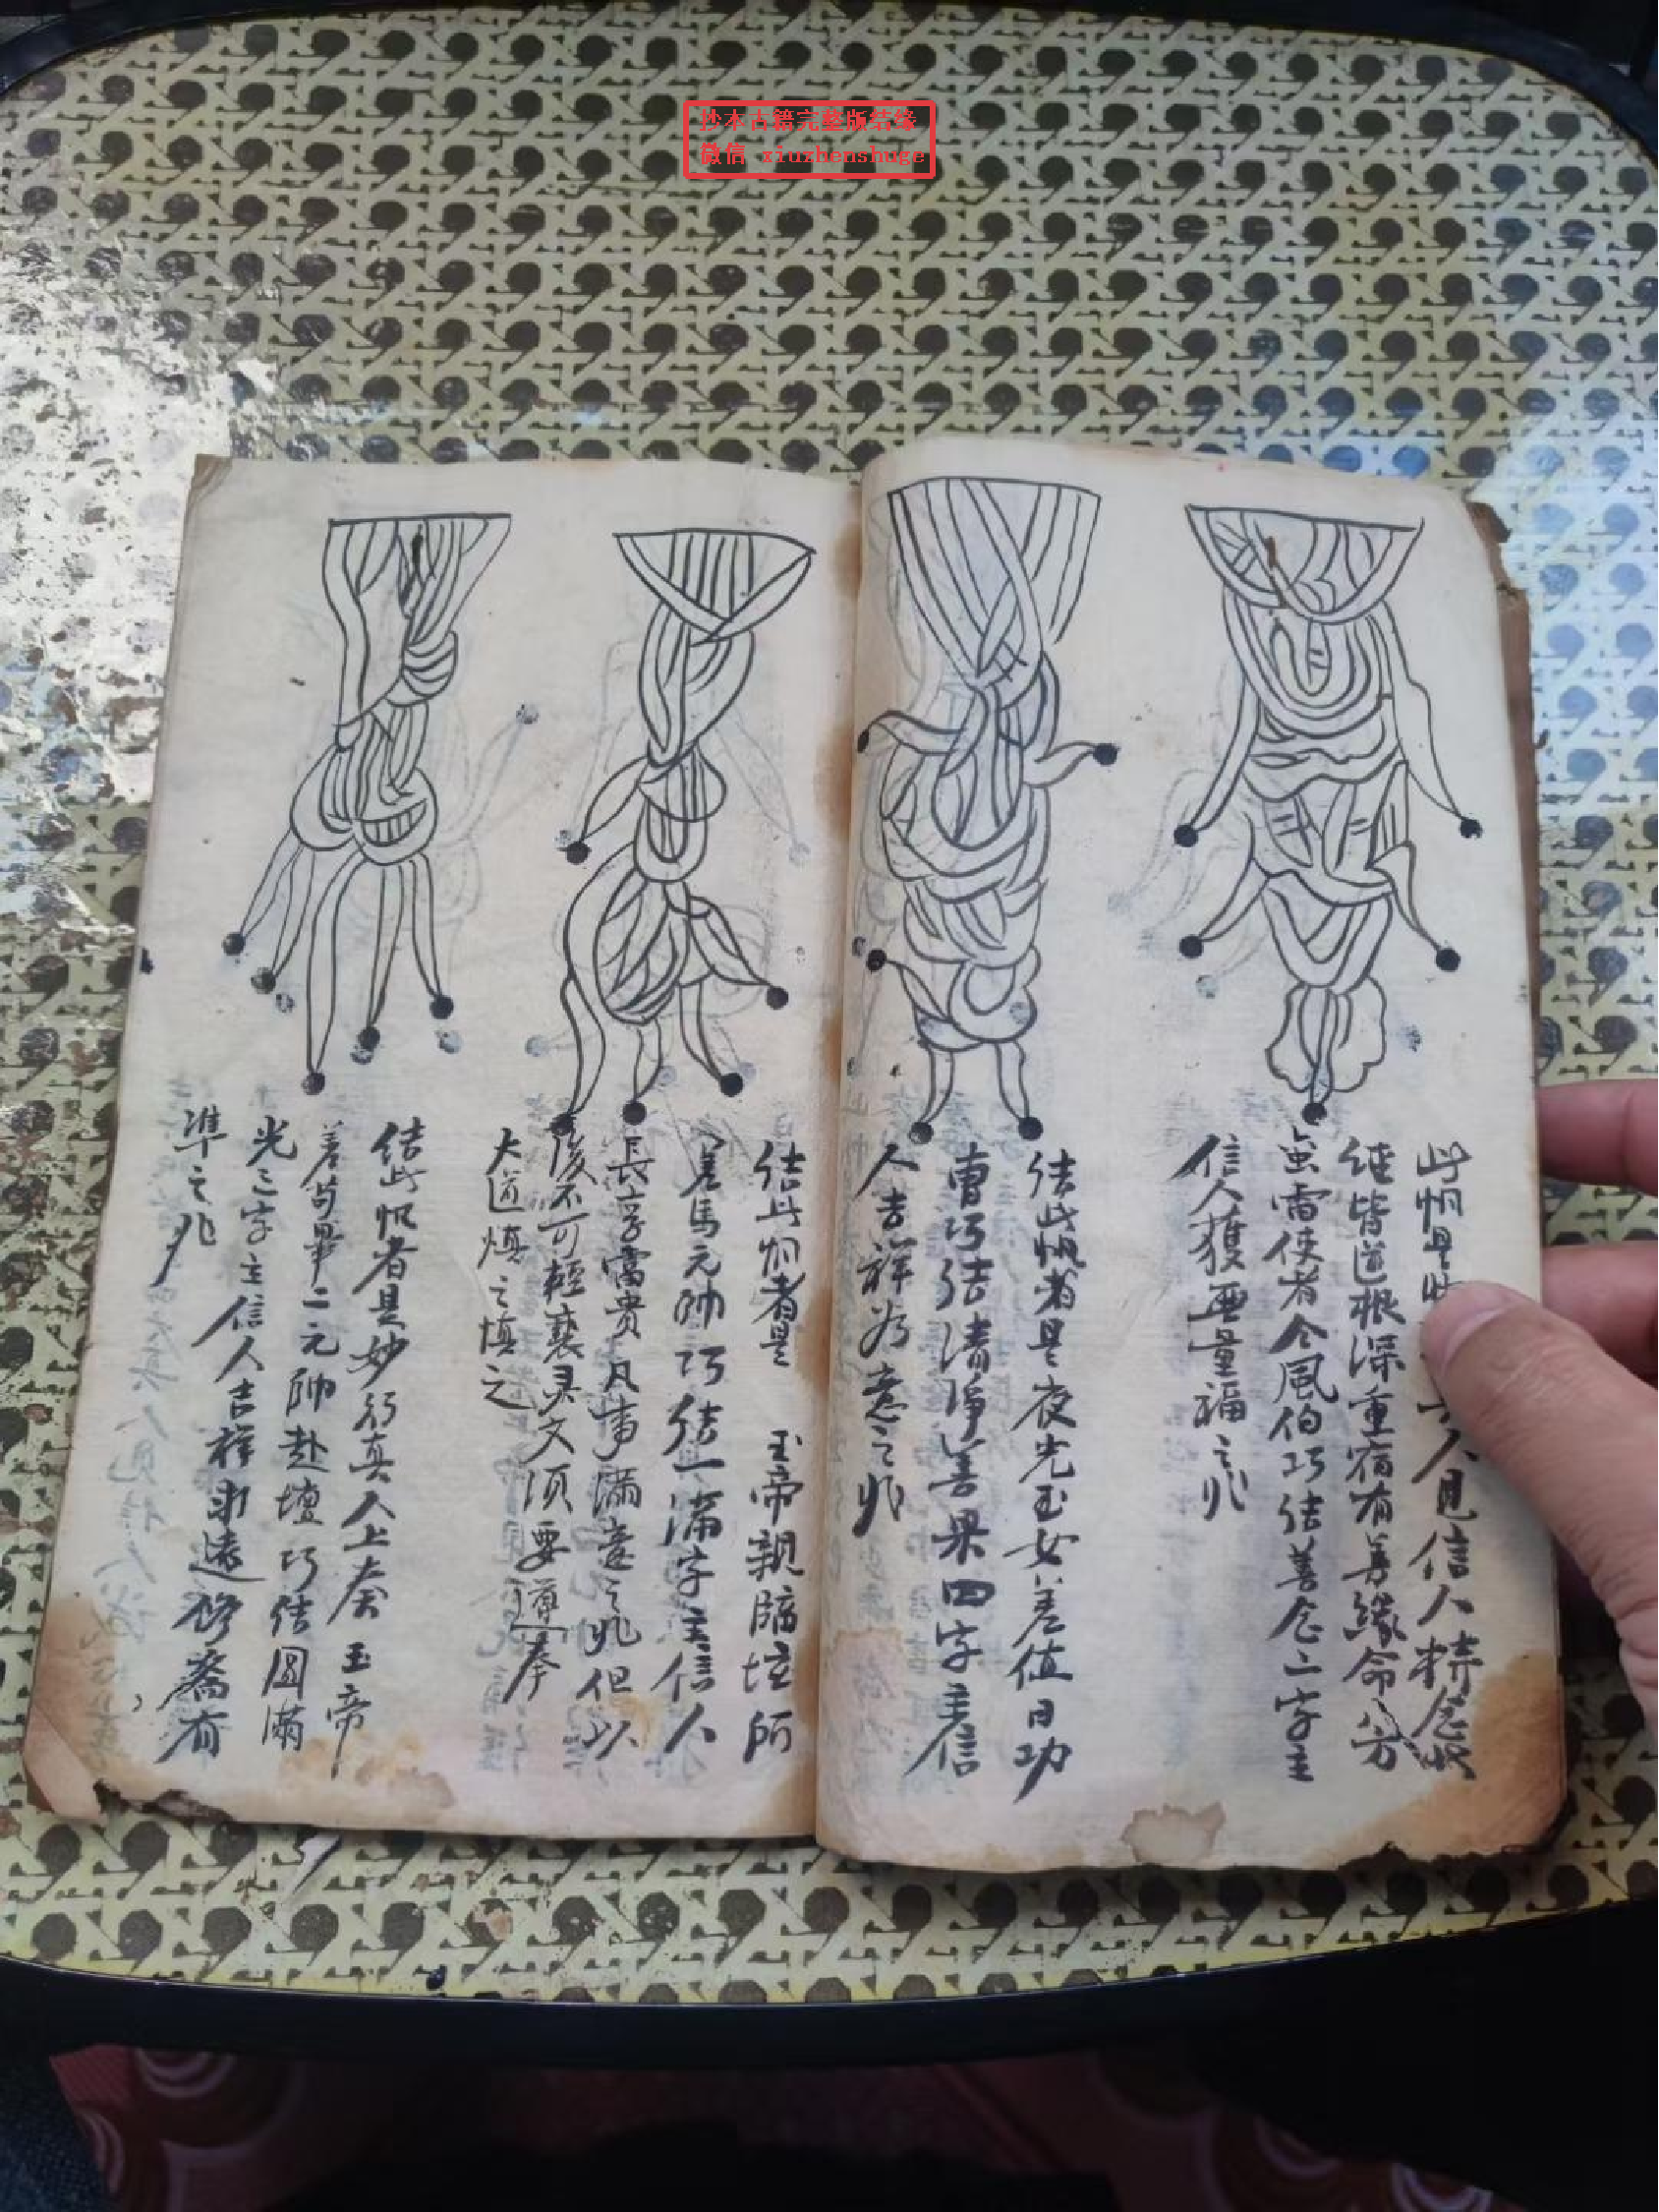 抄本古籍完整版结缘
微信 xiuzhenshuge
此旙是
人見信人精念
继皆道根深重宿有善緣命八方
虫雷使者仝風伯巧结善念二字主
信人獲無量福之兆
结此旙者是夜光玉女差值日功
曹巧结清净善果四字主信
人吉祥为意之兆
结此旙者是 玉帝親臨坛所
差馬元帅巧结一满字主信人
長享富贵凡事满意之兆但以
後不可輕亵灵文须要遵奉
大道慎之慎之
结此旙者是妙行真人上奏 玉帝
差苟畢二元帅赴壇巧结圆滿
光三字主信人吉祥永遠修齋有
準之兆